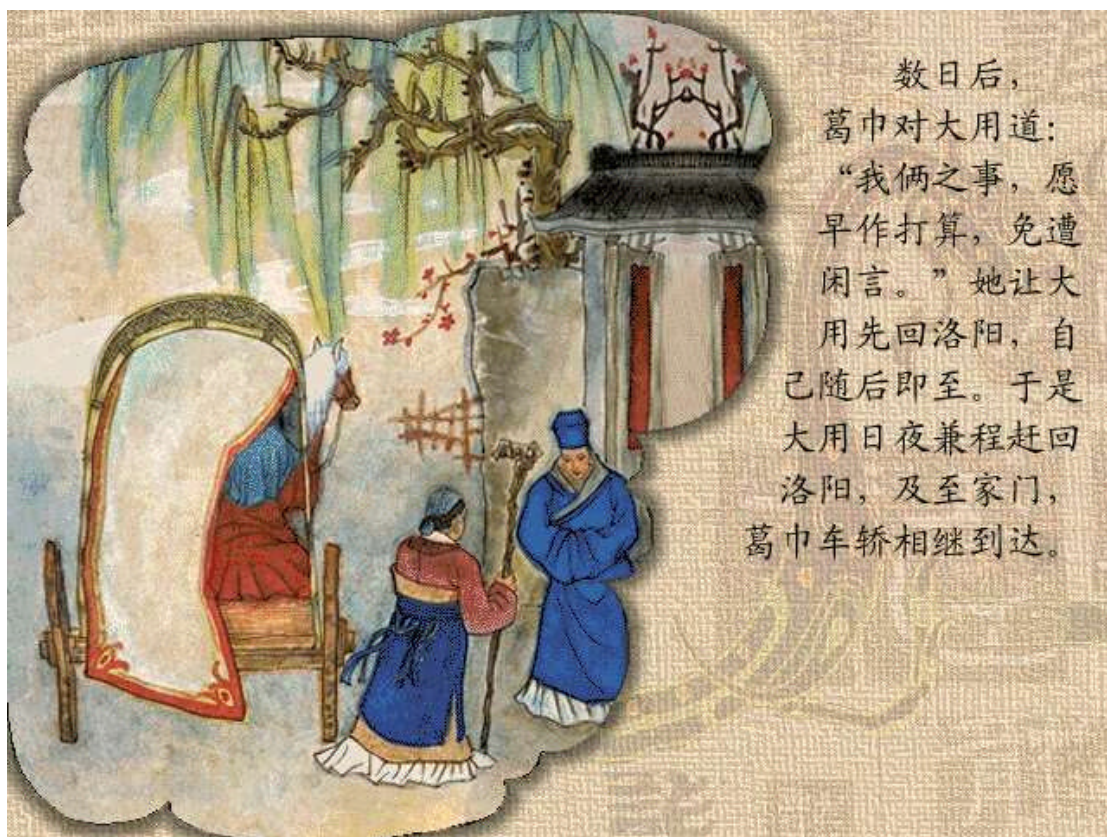 数日后，
葛巾对大用道：
“我俩之事，愿
早作打算，免遭
闲言。”她让大
用先回洛阳，自
己随后即至。于是
大用日夜兼程赶回
洛阳，及至家门，
葛巾车轿相继到达。